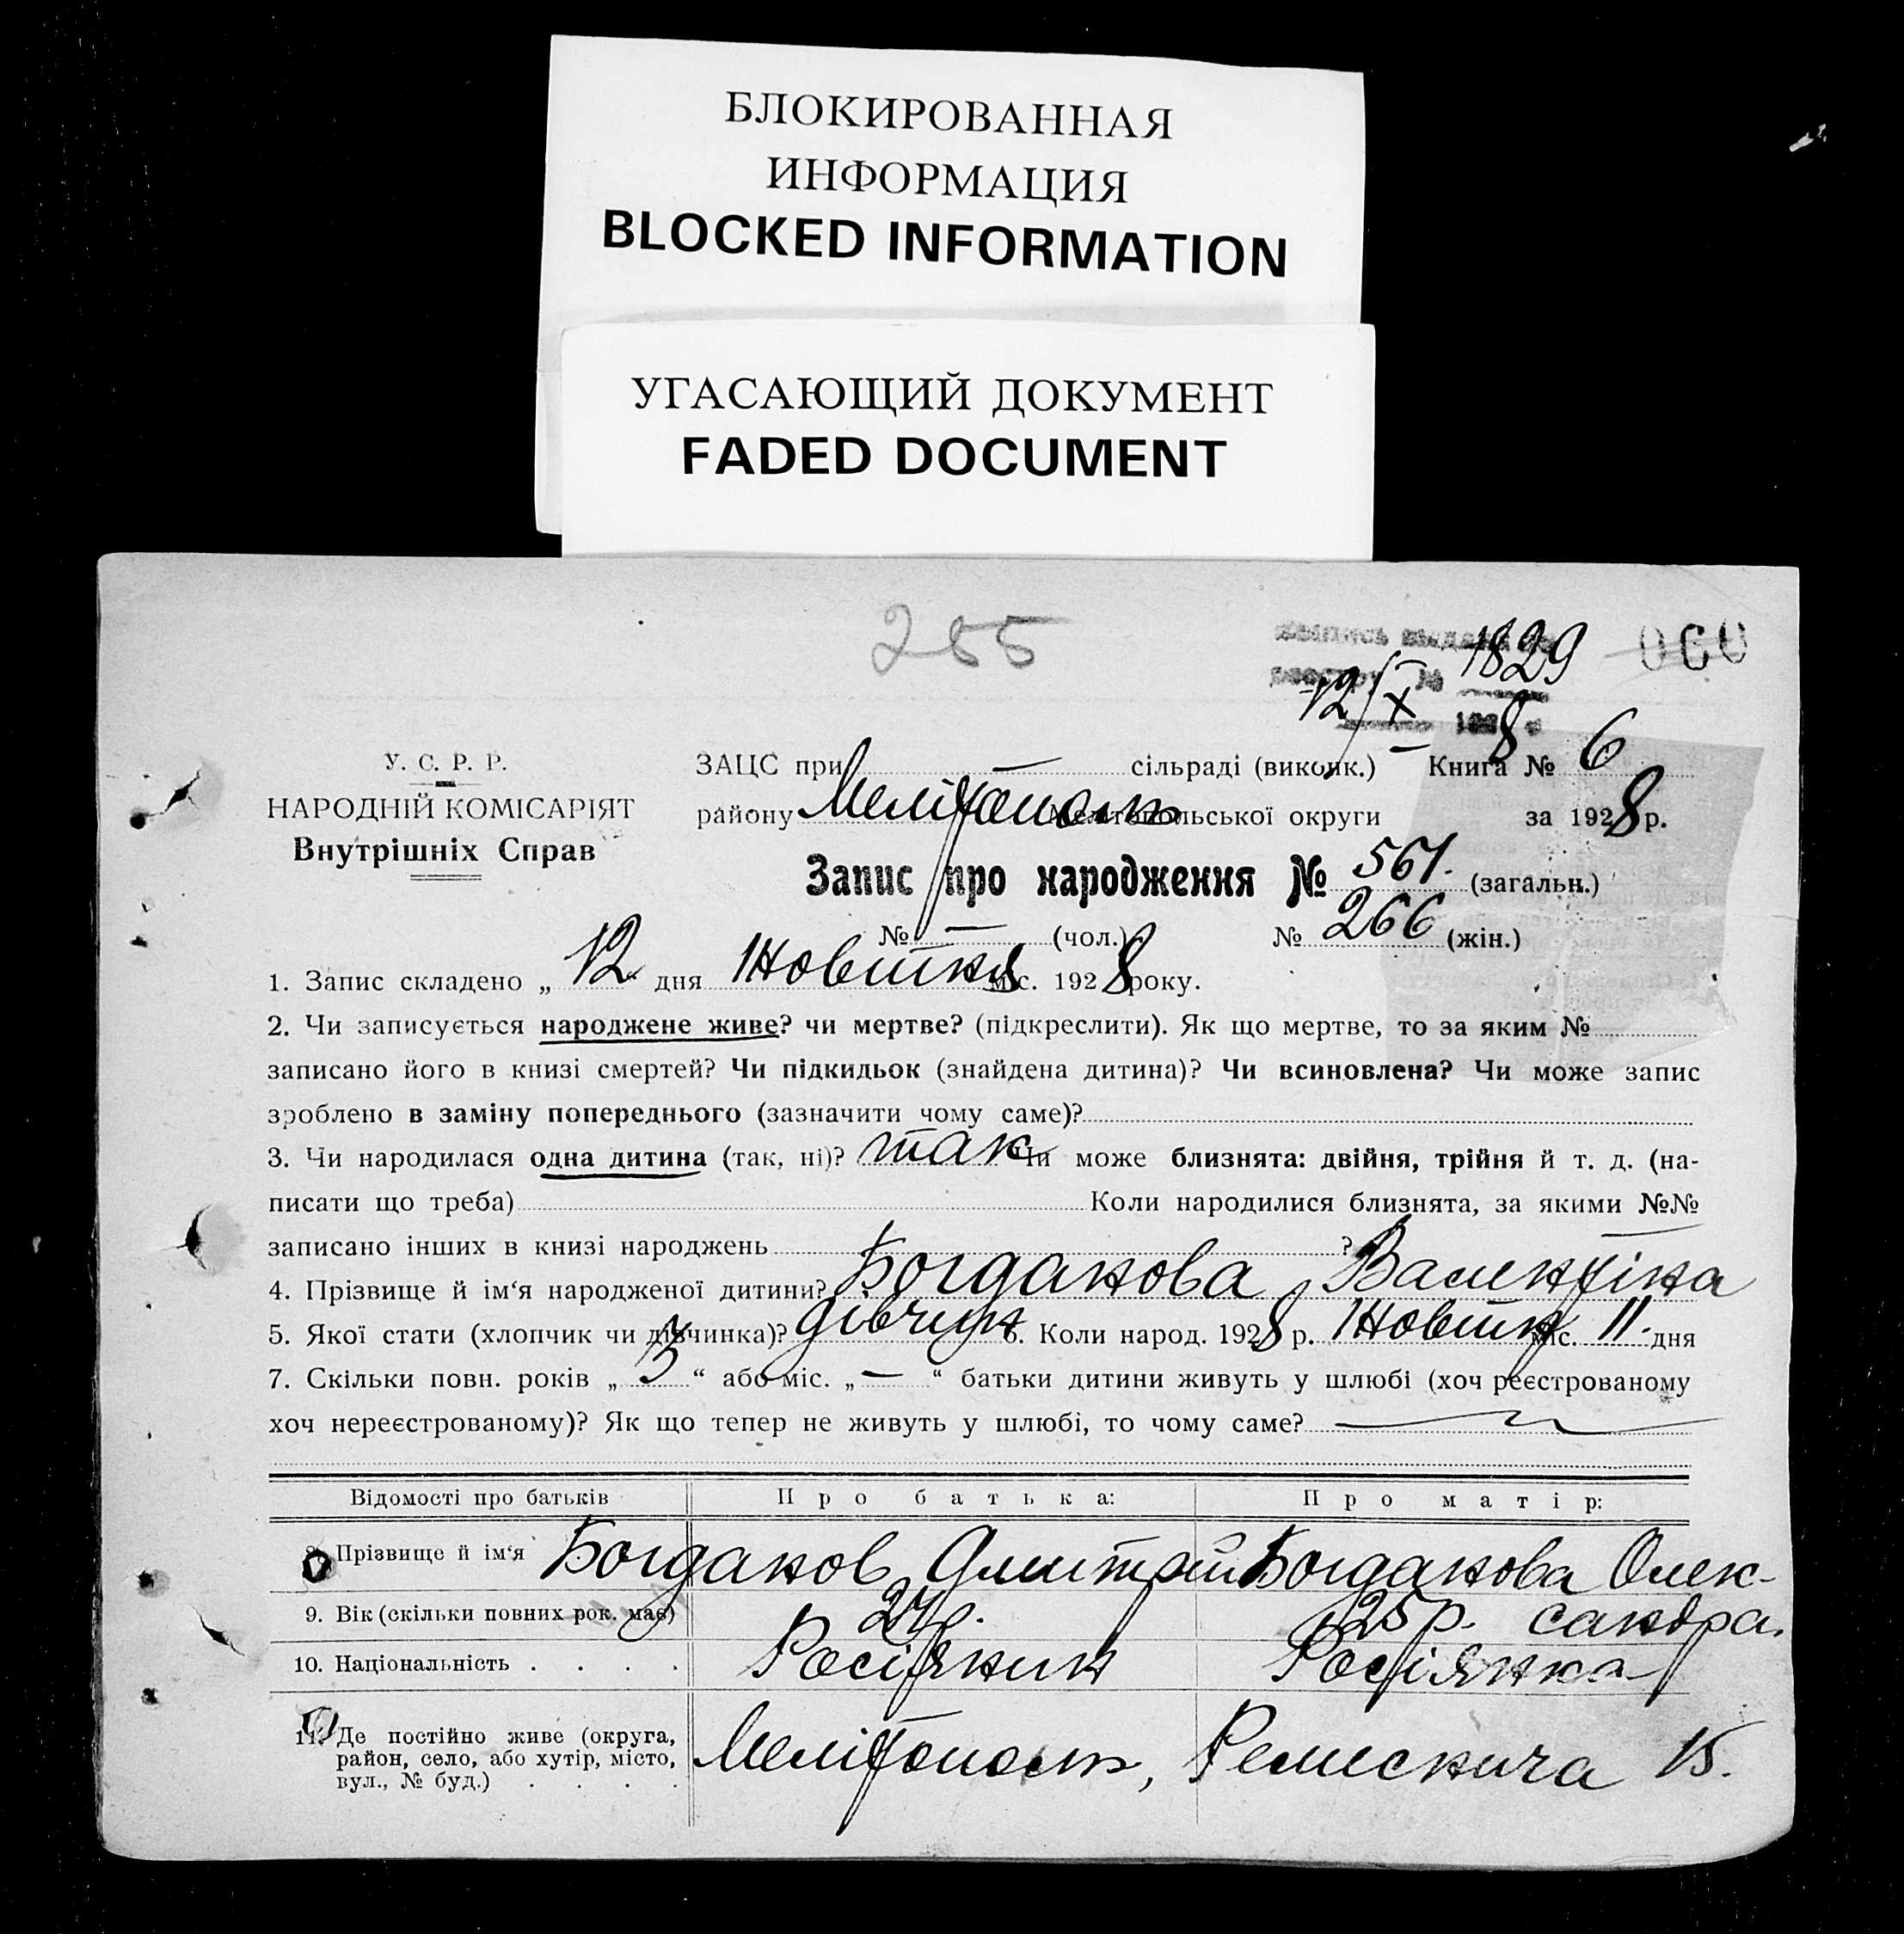 БЛОКИРОВАННАЯ
ИНФОРМАЦИЯ
BLOCKED INFORMATION
УГАСАЮЩИЙ ДОКУМЕНТ
FADED DOCUMENT
255
1829
12/X 1928
У. С. Р. Р.
НАРОДНІЙ КОМІСАРІЯТ
Внутрішніх Справ
ЗАЦС при — сільраді (виконк.) Книга № 6
району Мелітополь Мелітопольської округи за 1928 р.
Запис про народження № 561. (загальн.)
№ — (чол.) № 266 (жін.)
1. Запис складено „ 12 дня Жовтня міс. 1928 року.
2. Чи записується народжене живе? чи мертве? (підкреслити). Як що мертве, то за яким №
записано його в книзі смертей? Чи підкидьок (знайдена дитина)? Чи всиновлена? Чи може запис
зроблено в заміну попереднього (зазначити чому саме)?
3. Чи народилася одна дитина (так, ні)? так Чи може близнята: двійня, трійня й т. д. (на-
писати що треба) Коли народилися близнята, за якими №№
записано інших в книзі народжень ?
4. Прізвище й ім‘я народженої дитини? Богданова Валентіна
5. Якої стати (хлопчик чи дівчинка)? дівчин 6. Коли народ. 1928 р. Жовтня міс. 11. дня
7. Скільки повн. років „ 3 “ або міс. „ — “ батьки дитини живуть у шлюбі (хоч реєстрованому
хоч нереєстрованому)? Як що тепер не живуть у шлюбі, то чому саме?
Відомості про батьків Про батька: Про матір:
8. Прізвище й ім‘я Богданов Дмитрий Богданова Олек-
9. Вік (скільки повних рок. має) 27р. 25р. сандра.
10. Національність . . . . Росіянин Росіянка
11. Де постійно живе (округа,
район, село, або хутір, місто,
вул., № буд.) . . . . Мелітополь, 15.